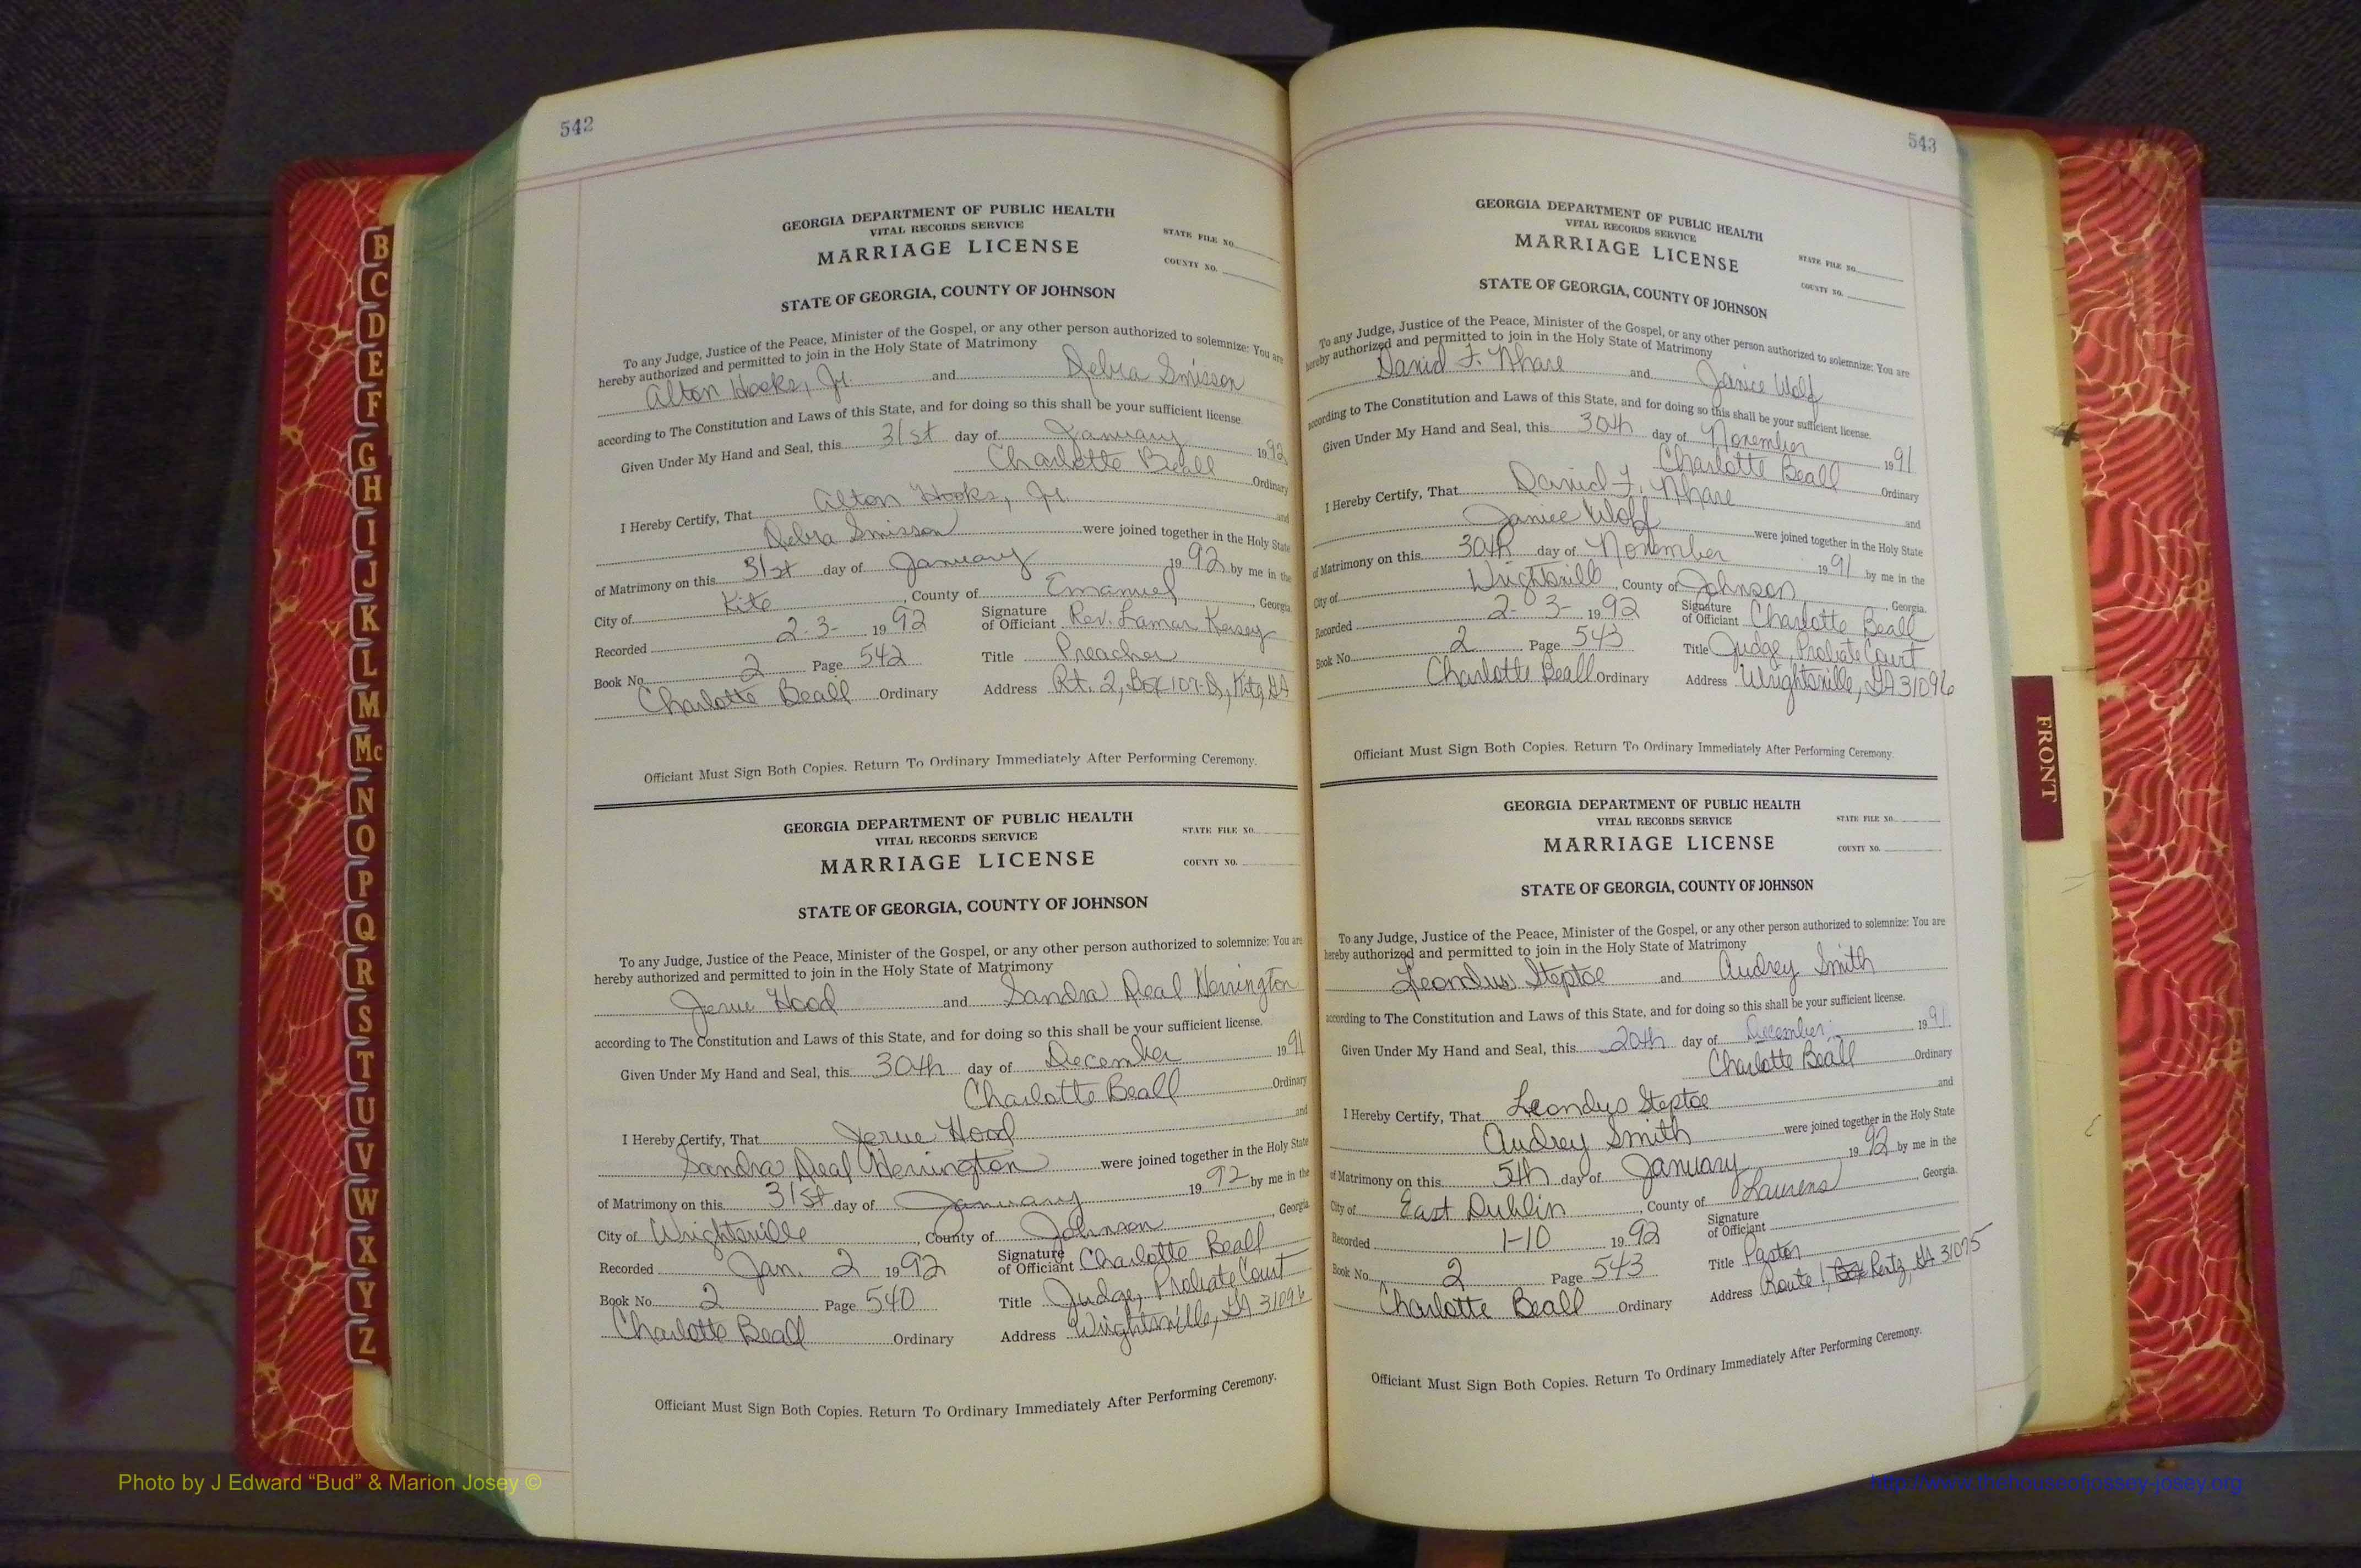 542
GEORGIA DEPARTMENT OF PUBLIC HEALTH
VITAL RECORDS SERVICE
MARRIAGE LICENSE
STATE FILE NO.
COUNTY NO.
STATE OF GEORGIA, COUNTY OF JOHNSON
To any Judge, Justice of the Peace, Minister of the Gospel, or any other person authorized to solemnize: You are
hereby authorized and permitted to join in the Holy State of Matrimony
Alton Hooks, Jr. and Debra Smisson
according to The Constitution and Laws of this State, and for doing so this shall be your sufficient license.
Given Under My Hand and Seal, this 31st day of January 1992
Charlotte Beall Ordinary
I Hereby Certify, That Alton Hooks, Jr. and
Debra Smisson were joined together in the Holy State
of Matrimony on this 31st day of January 1992 by me in the
City of Kite, County of Emanuel, Georgia
Recorded 2-3- 1992 Signature of Officiant Rev. Lamar Kersey
Book No. 2 Page 542 Title Preacher
Charlotte Beall Ordinary Address Rt. 2, Box 107-D, Kite, GA
Officiant Must Sign Both Copies. Return To Ordinary Immediately After Performing Ceremony.
GEORGIA DEPARTMENT OF PUBLIC HEALTH
VITAL RECORDS SERVICE
MARRIAGE LICENSE
STATE FILE NO.
COUNTY NO.
STATE OF GEORGIA, COUNTY OF JOHNSON
To any Judge, Justice of the Peace, Minister of the Gospel, or any other person authorized to solemnize: You are
hereby authorized and permitted to join in the Holy State of Matrimony
Jerue Hood and Sandra Deal Herrington
according to The Constitution and Laws of this State, and for doing so this shall be your sufficient license.
Given Under My Hand and Seal, this 30th day of December 1991
Charlotte Beall Ordinary
I Hereby Certify, That Jerue Hood and
Sandra Deal Herrington were joined together in the Holy State
of Matrimony on this 31st day of January 1992 by me in the
City of Wrightsville, County of Johnson, Georgia
Recorded Jan. 2 1992 Signature of Officiant Charlotte Beall
Book No. 2 Page 540 Title Judge, Probate Court
Charlotte Beall Ordinary Address Wrightsville, GA 31096
Officiant Must Sign Both Copies. Return To Ordinary Immediately After Performing Ceremony.
543
GEORGIA DEPARTMENT OF PUBLIC HEALTH
VITAL RECORDS SERVICE
MARRIAGE LICENSE
STATE FILE NO.
COUNTY NO.
STATE OF GEORGIA, COUNTY OF JOHNSON
To any Judge, Justice of the Peace, Minister of the Gospel, or any other person authorized to solemnize: You are
hereby authorized and permitted to join in the Holy State of Matrimony
David F. and Janice Wolf
according to The Constitution and Laws of this State, and for doing so this shall be your sufficient license.
Given Under My Hand and Seal, this 30th day of November 1991
Charlotte Beall Ordinary
I Hereby Certify, That David F. and
Janice Wolf were joined together in the Holy State
of Matrimony on this 30th day of November 1991 by me in the
City of Wrightsville, County of Johnson, Georgia.
Recorded 2-3- 1992 Signature of Officiant Charlotte Beall
Book No. 2 Page 543 Title Judge, Probate Court
Charlotte Beall Ordinary Address Wrightsville, GA 31096
Officiant Must Sign Both Copies. Return To Ordinary Immediately After Performing Ceremony.
GEORGIA DEPARTMENT OF PUBLIC HEALTH
VITAL RECORDS SERVICE
MARRIAGE LICENSE
STATE FILE NO.
COUNTY NO.
STATE OF GEORGIA, COUNTY OF JOHNSON
To any Judge, Justice of the Peace, Minister of the Gospel, or any other person authorized to solemnize: You are
hereby authorized and permitted to join in the Holy State of Matrimony
Leondus Steptoe and Audrey Smith
according to The Constitution and Laws of this State, and for doing so this shall be your sufficient license.
Given Under My Hand and Seal, this 20th day of December 1991
Charlotte Beall Ordinary
I Hereby Certify, That Leondus Steptoe and
Audrey Smith were joined together in the Holy State
of Matrimony on this 5th day of January 1992 by me in the
City of East Dublin, County of Laurens, Georgia.
Recorded 1-10 1992 Signature of Officiant
Book No. 2 Page 543 Title Pastor
Charlotte Beall Ordinary Address Route 1, Rentz, GA 31075
Officiant Must Sign Both Copies. Return To Ordinary Immediately After Performing Ceremony.
B
C
D
E
F
G
H
I
J
K
L
M
Mc
N
O
P
Q
R
S
T
U
V
W
X
Y
Z
FRONT
Photo by J Edward “Bud” & Marion Josey ©
http://www.thehouseofjossey-josey.org